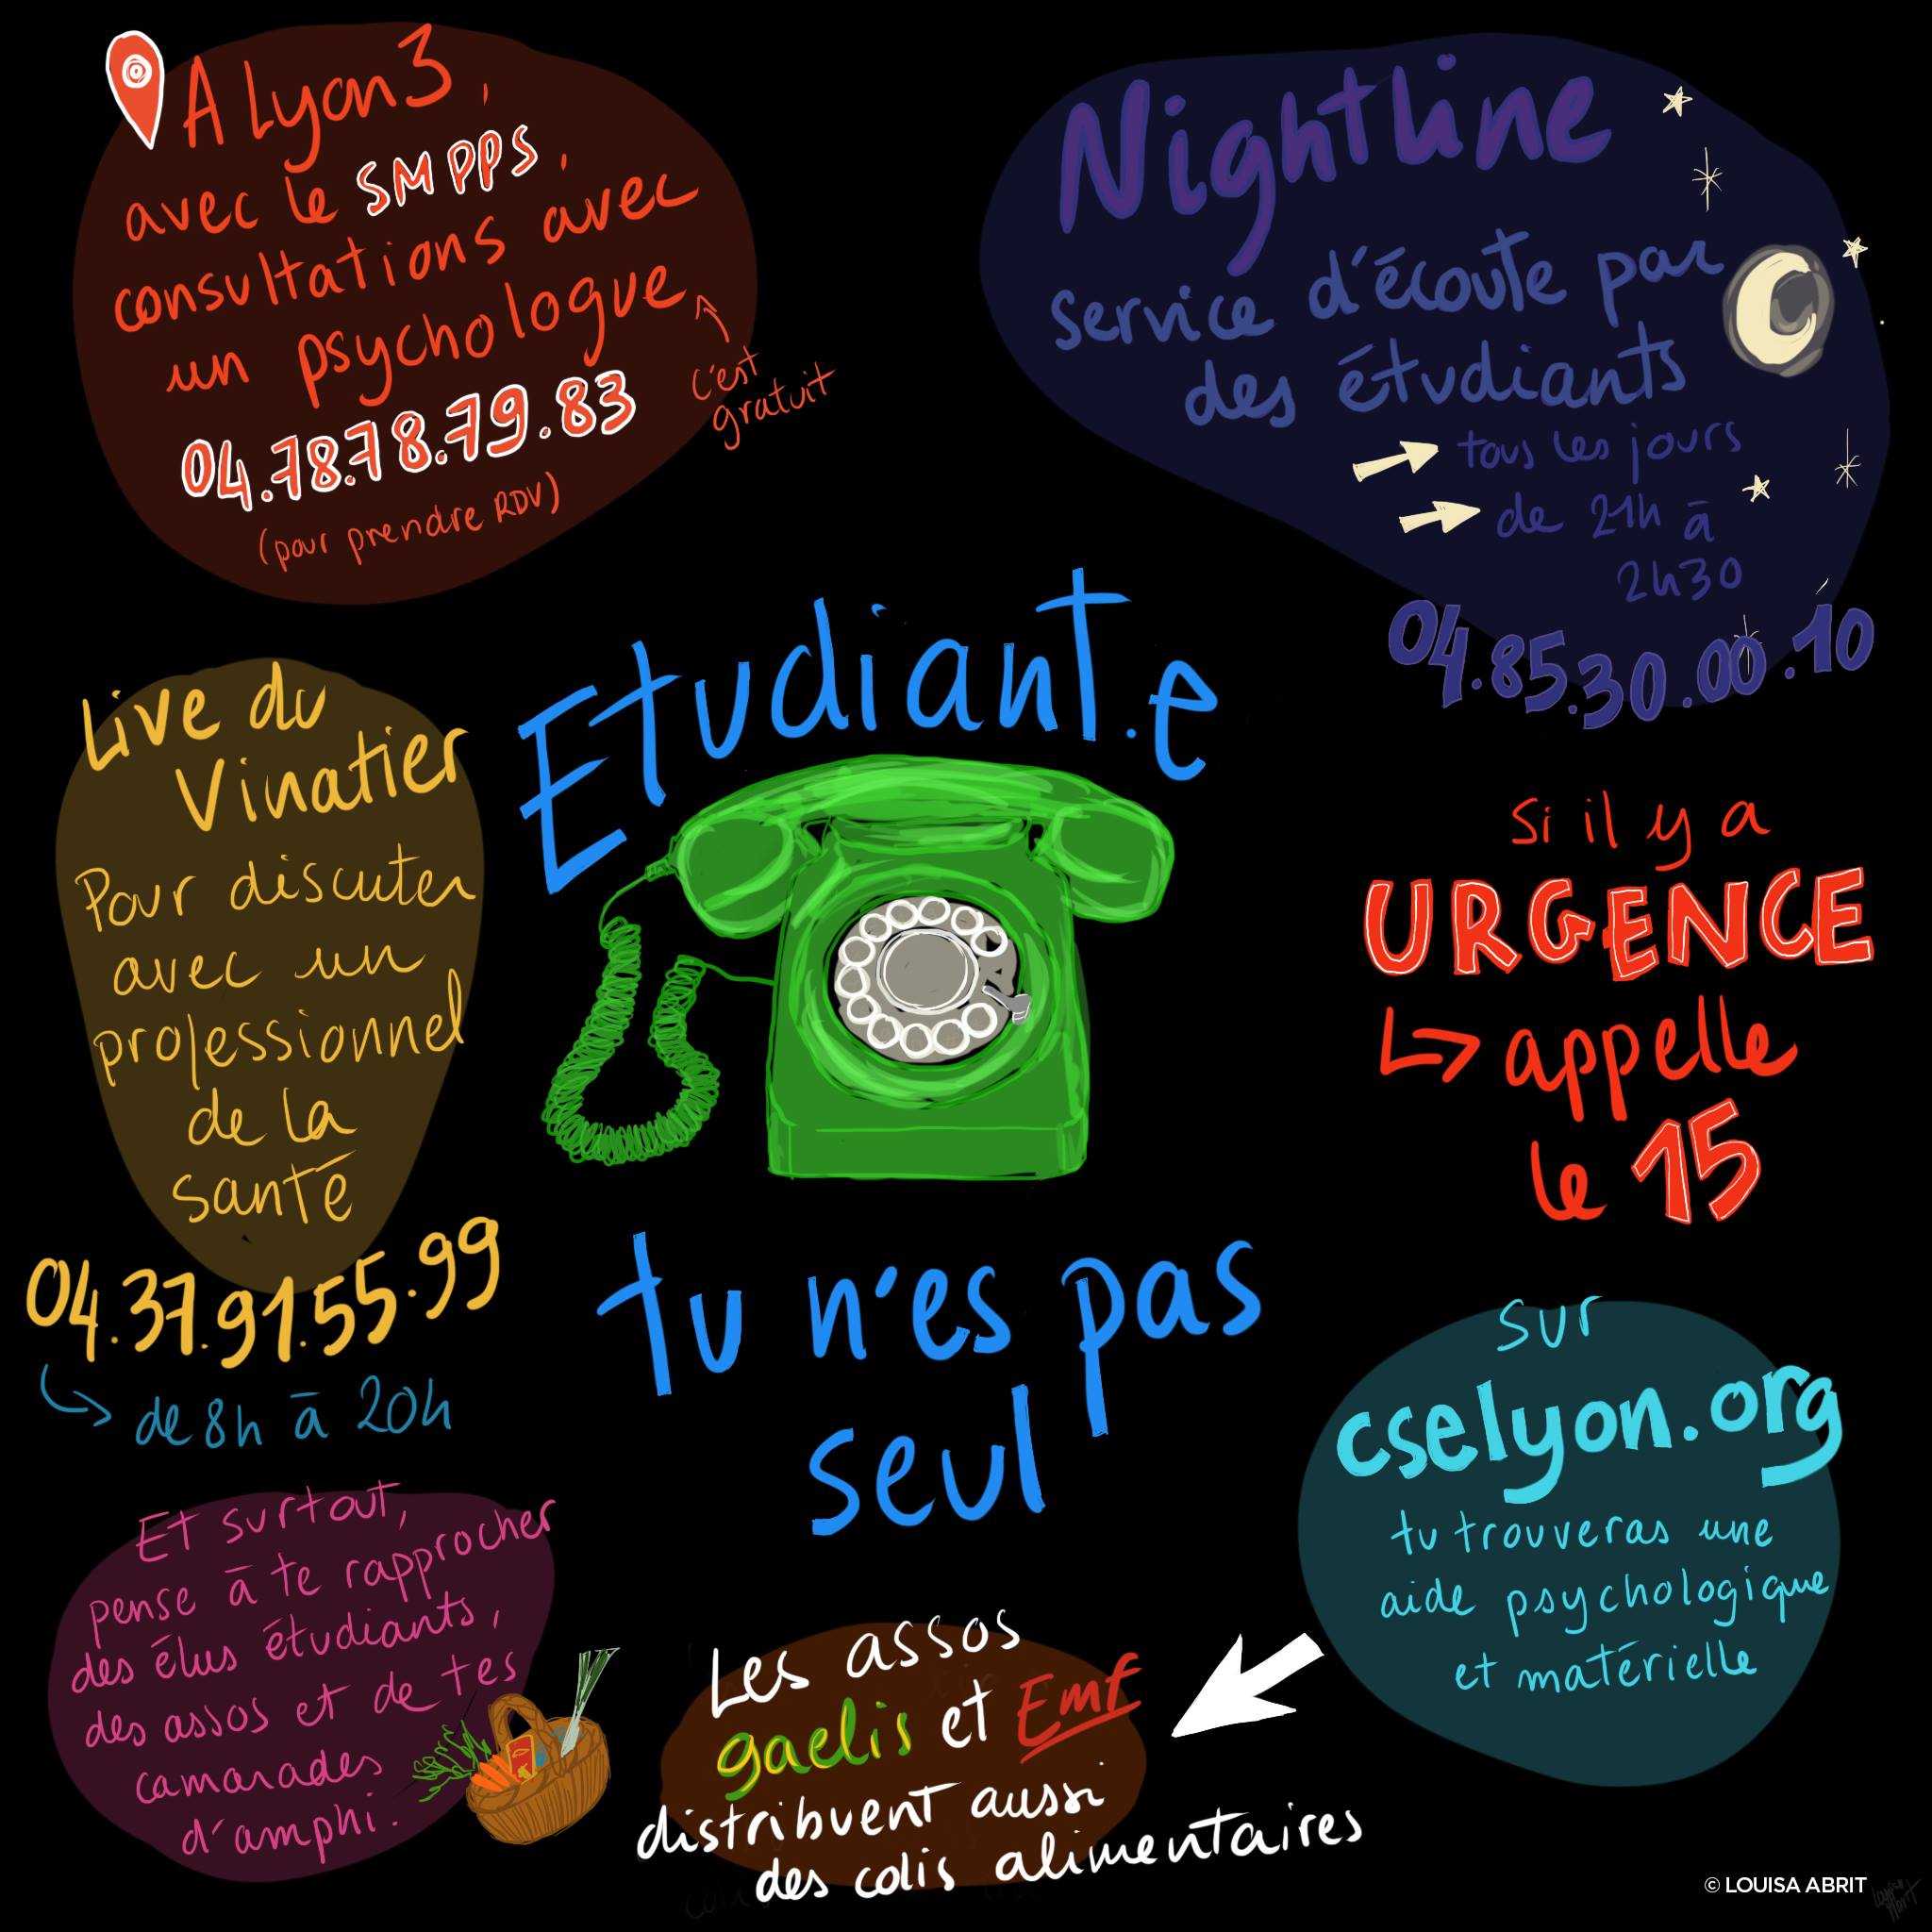 A Lyon 3,
avec le SMPPS,
consultations avec
un psychologue
c'est
gratuit
04.78.78.79.83
(pour prendre RDV)
Nightline
service d'écoute par
des étudiants
tous les jours
de 21h à
2h30
04.85.30.00.10
Etudiant.e
tu n'es pas
seul
Live du
Vinatier
Pour discuter
avec un
professionnel
de la
santé
04.37.91.55.99
de 8h à 20h
si il y a
URGENCE
appelle
le 15
sur
cselyon.org
tu trouveras une
aide psychologique
et matérielle
Et surtout,
pense à te rapprocher
des élus étudiants,
des assos et de tes
camarades
d'amphi.
Les assos
gaelis et Emf
distribuent aussi
des colis alimentaires
© LOUISA ABRIT